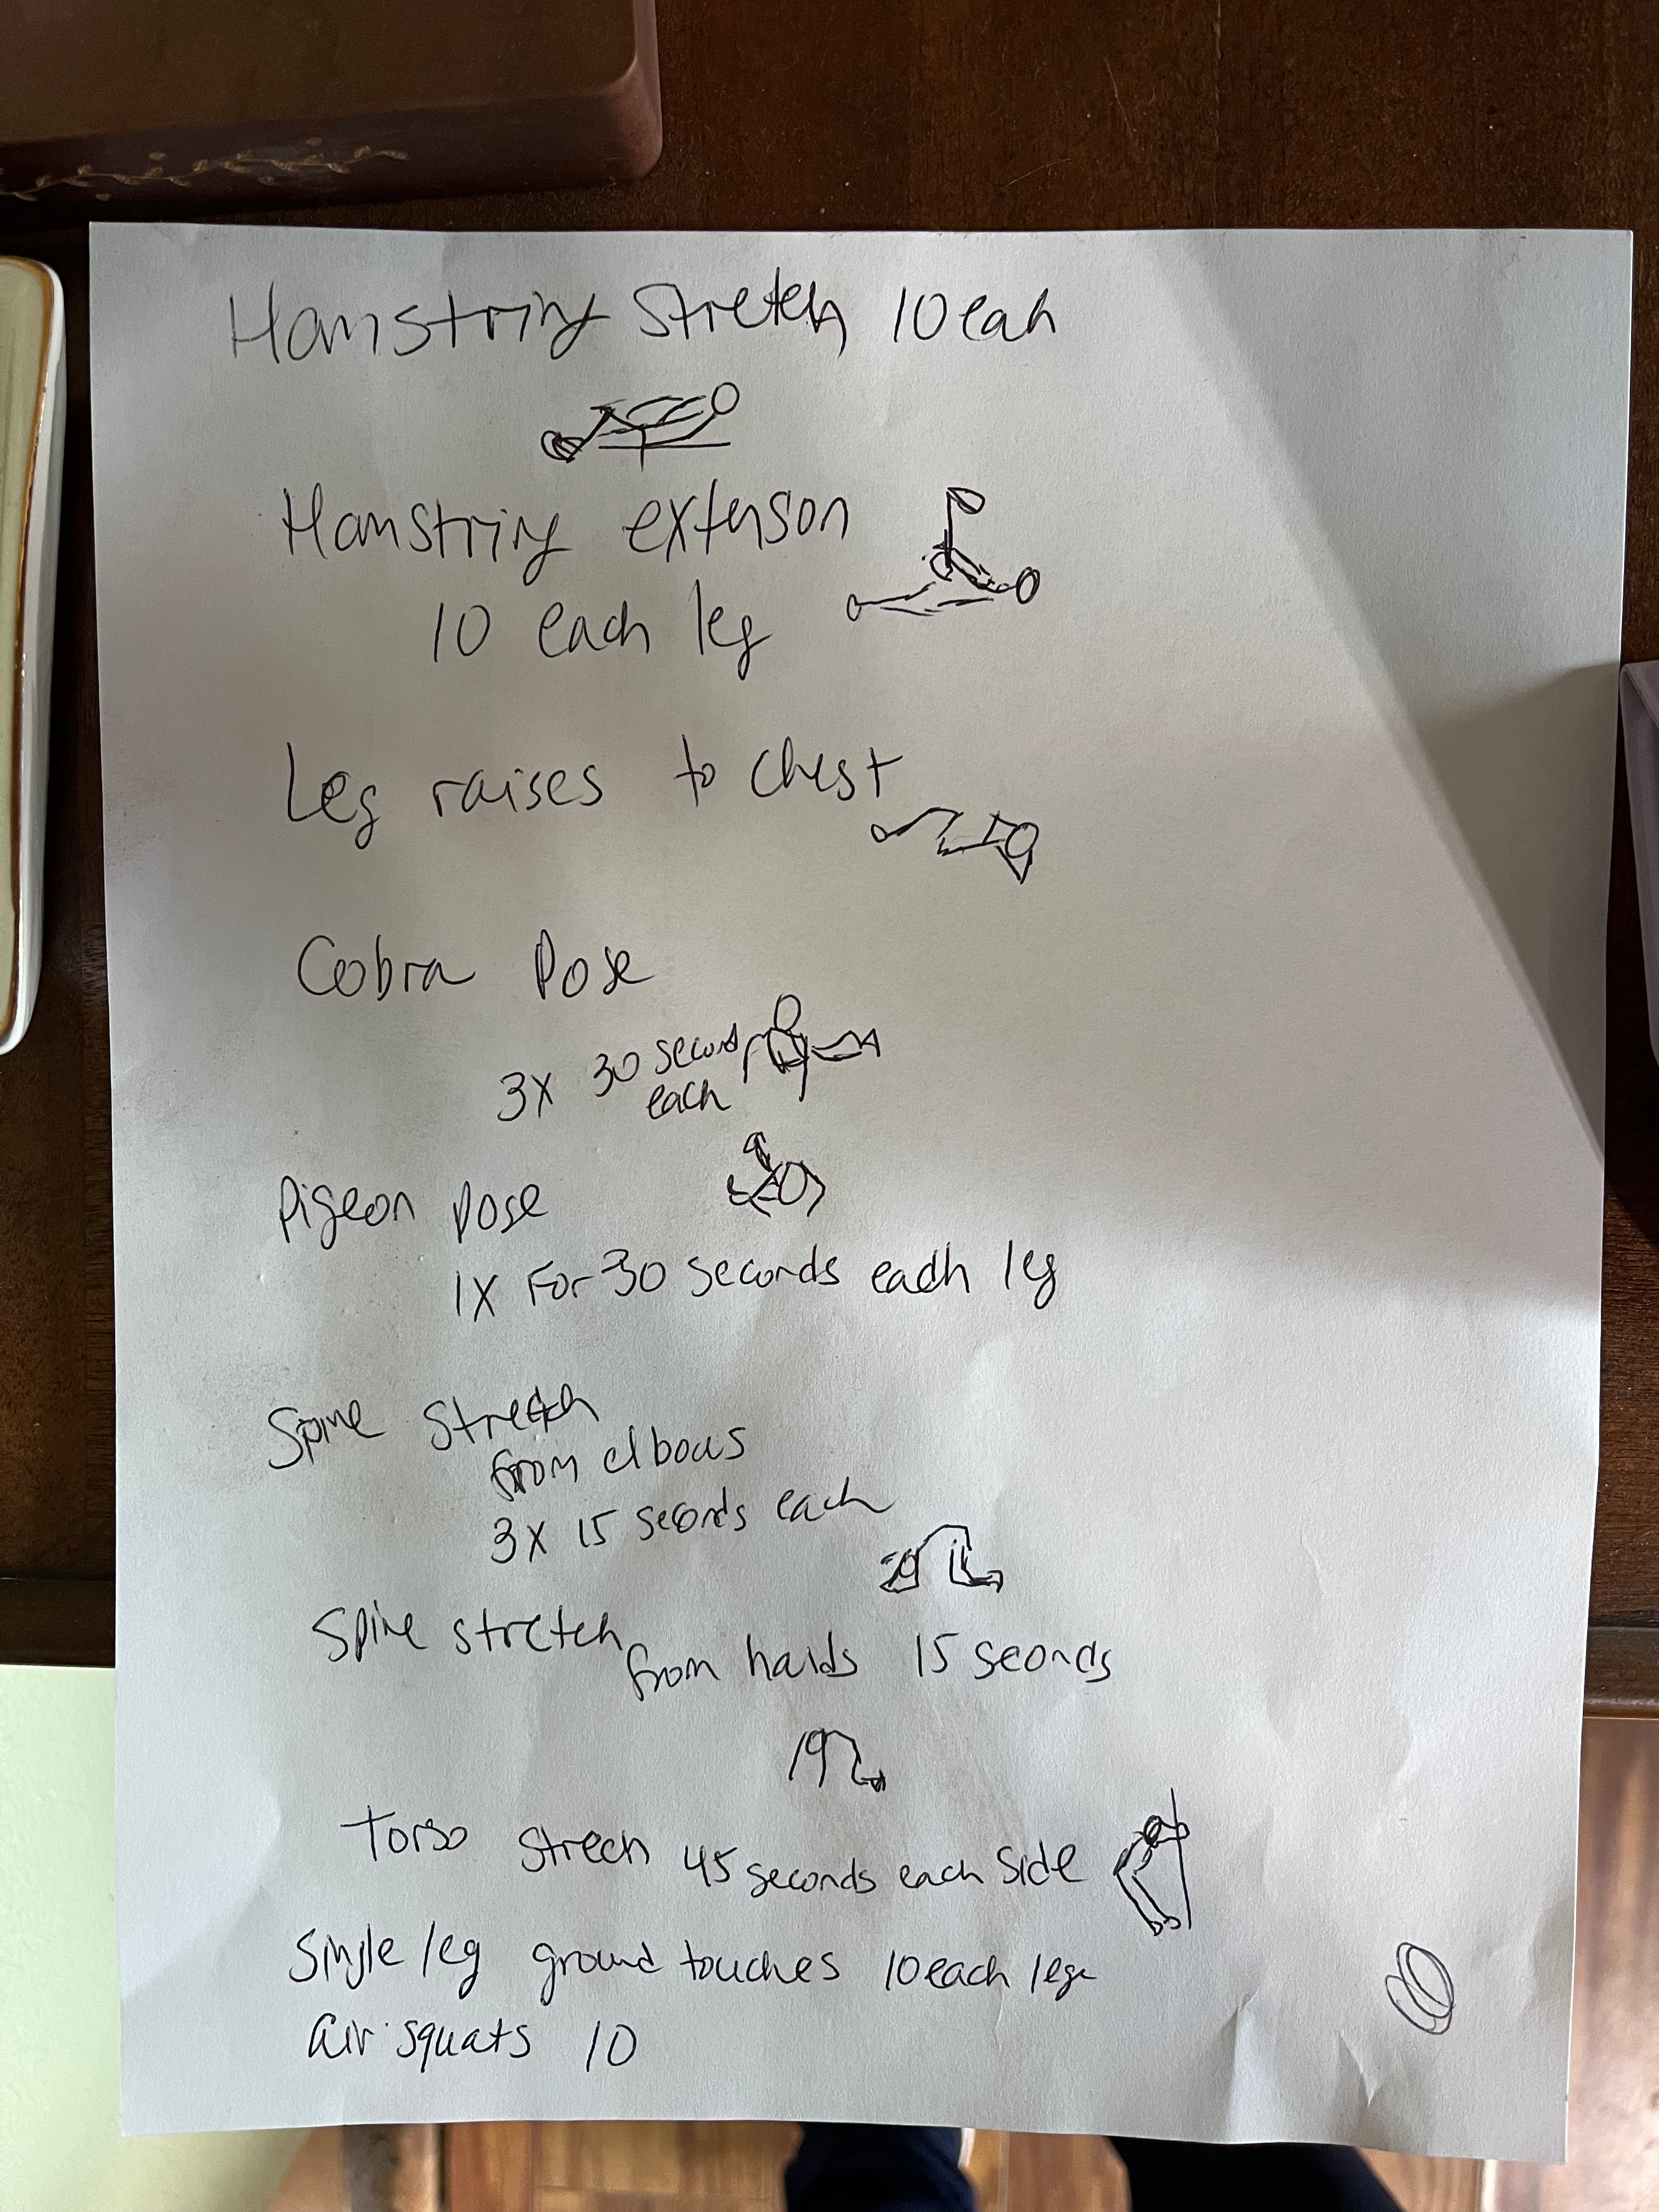 Hamstring stretch 10 eah
Hamstring extenson
10 each leg
Leg raises to chest
Cobra Pose
3x 30 second
each
Pigeon pose
1x For 30 seconds each leg
Spine Stretch
from elbows
3x 15 seconds each
Spine stretch from hands 15 seconds
Torso Strech 45 seconds each side
Single leg ground touches 10 each leg
air squats 10